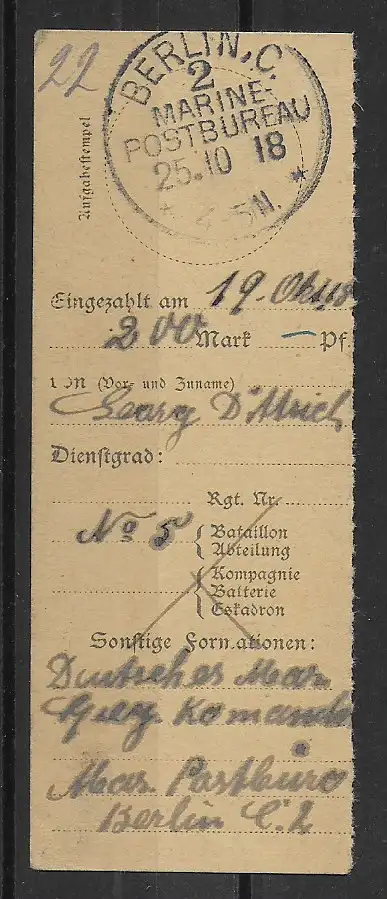 22
Aufgabestempel
BERLIN, C.
2
MARINE-
POSTBUREAU
25.10 18
* 4-5N. *
Eingezahlt am 19. Okt. 18
200 Mark — Pf.
von (Vor- und Zuname)
Georg
Dienstgrad:
Rgt. Nr.
No 5 { Bataillon
Abteilung
{ Kompagnie
Batterie
Eskadron
Sonstige Formationen:
Deutsches Mar.
Komando
Mar. Postbüro
Berlin C. 2